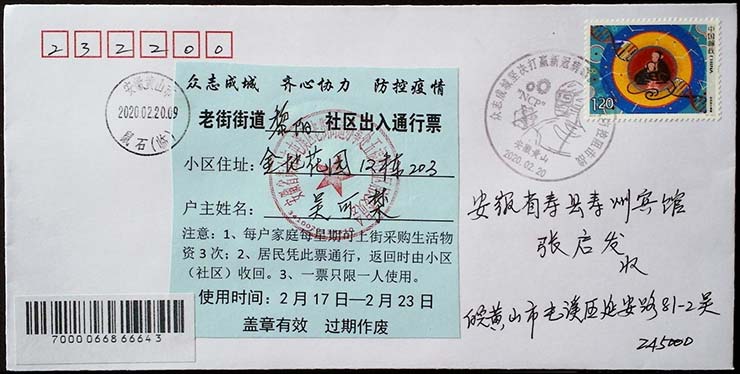 232200
安徽黄山
2020.02.20.09
鼠石(休)
众志成城 齐心协力 防控疫情
老街街道 黎阳 社区出入通行票
小区住址: 金地花园 12栋203
户主姓名:
注意:1、每户家庭每星期可上街采购生活物
资3次;2、居民凭此票通行,返回时由小区
(社区)收回。3、一票只限一人使用。
使用时间:2月17日—2月23日
盖章有效 过期作废
7000066866643
众志成城坚决打赢新冠病
"NCP"
安徽黄山
2020.02.20
1.20
中国邮政
CHINA
安徽省寿县寿州宾馆
张启发
收
皖黄山市屯溪区延安路81-2吴
245000